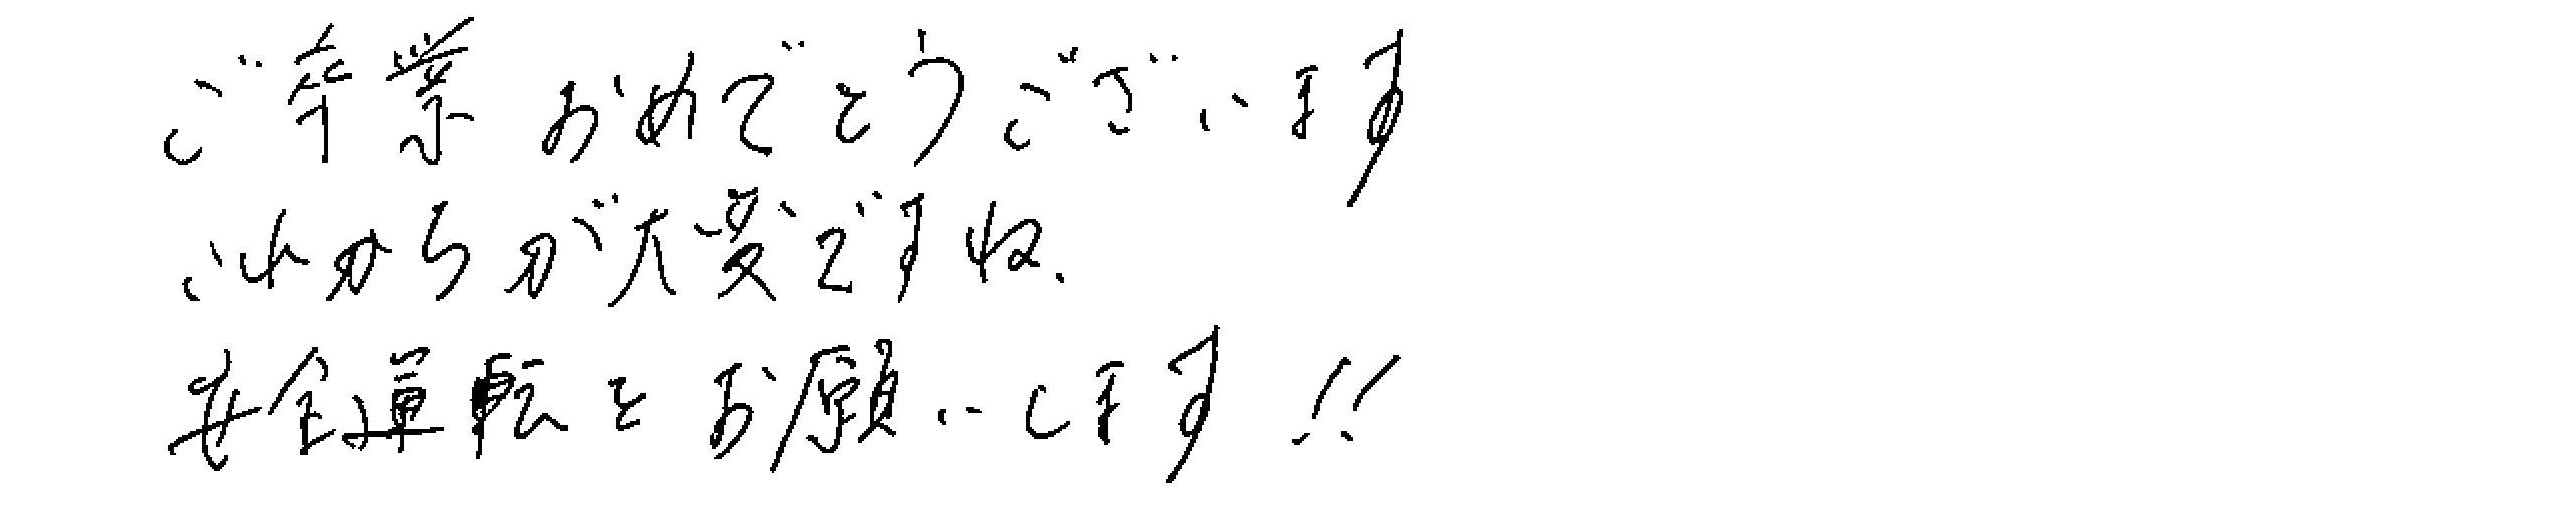 ご卒業おめでとうございます
これからが大変ですね.
安全運転をお願いします!!